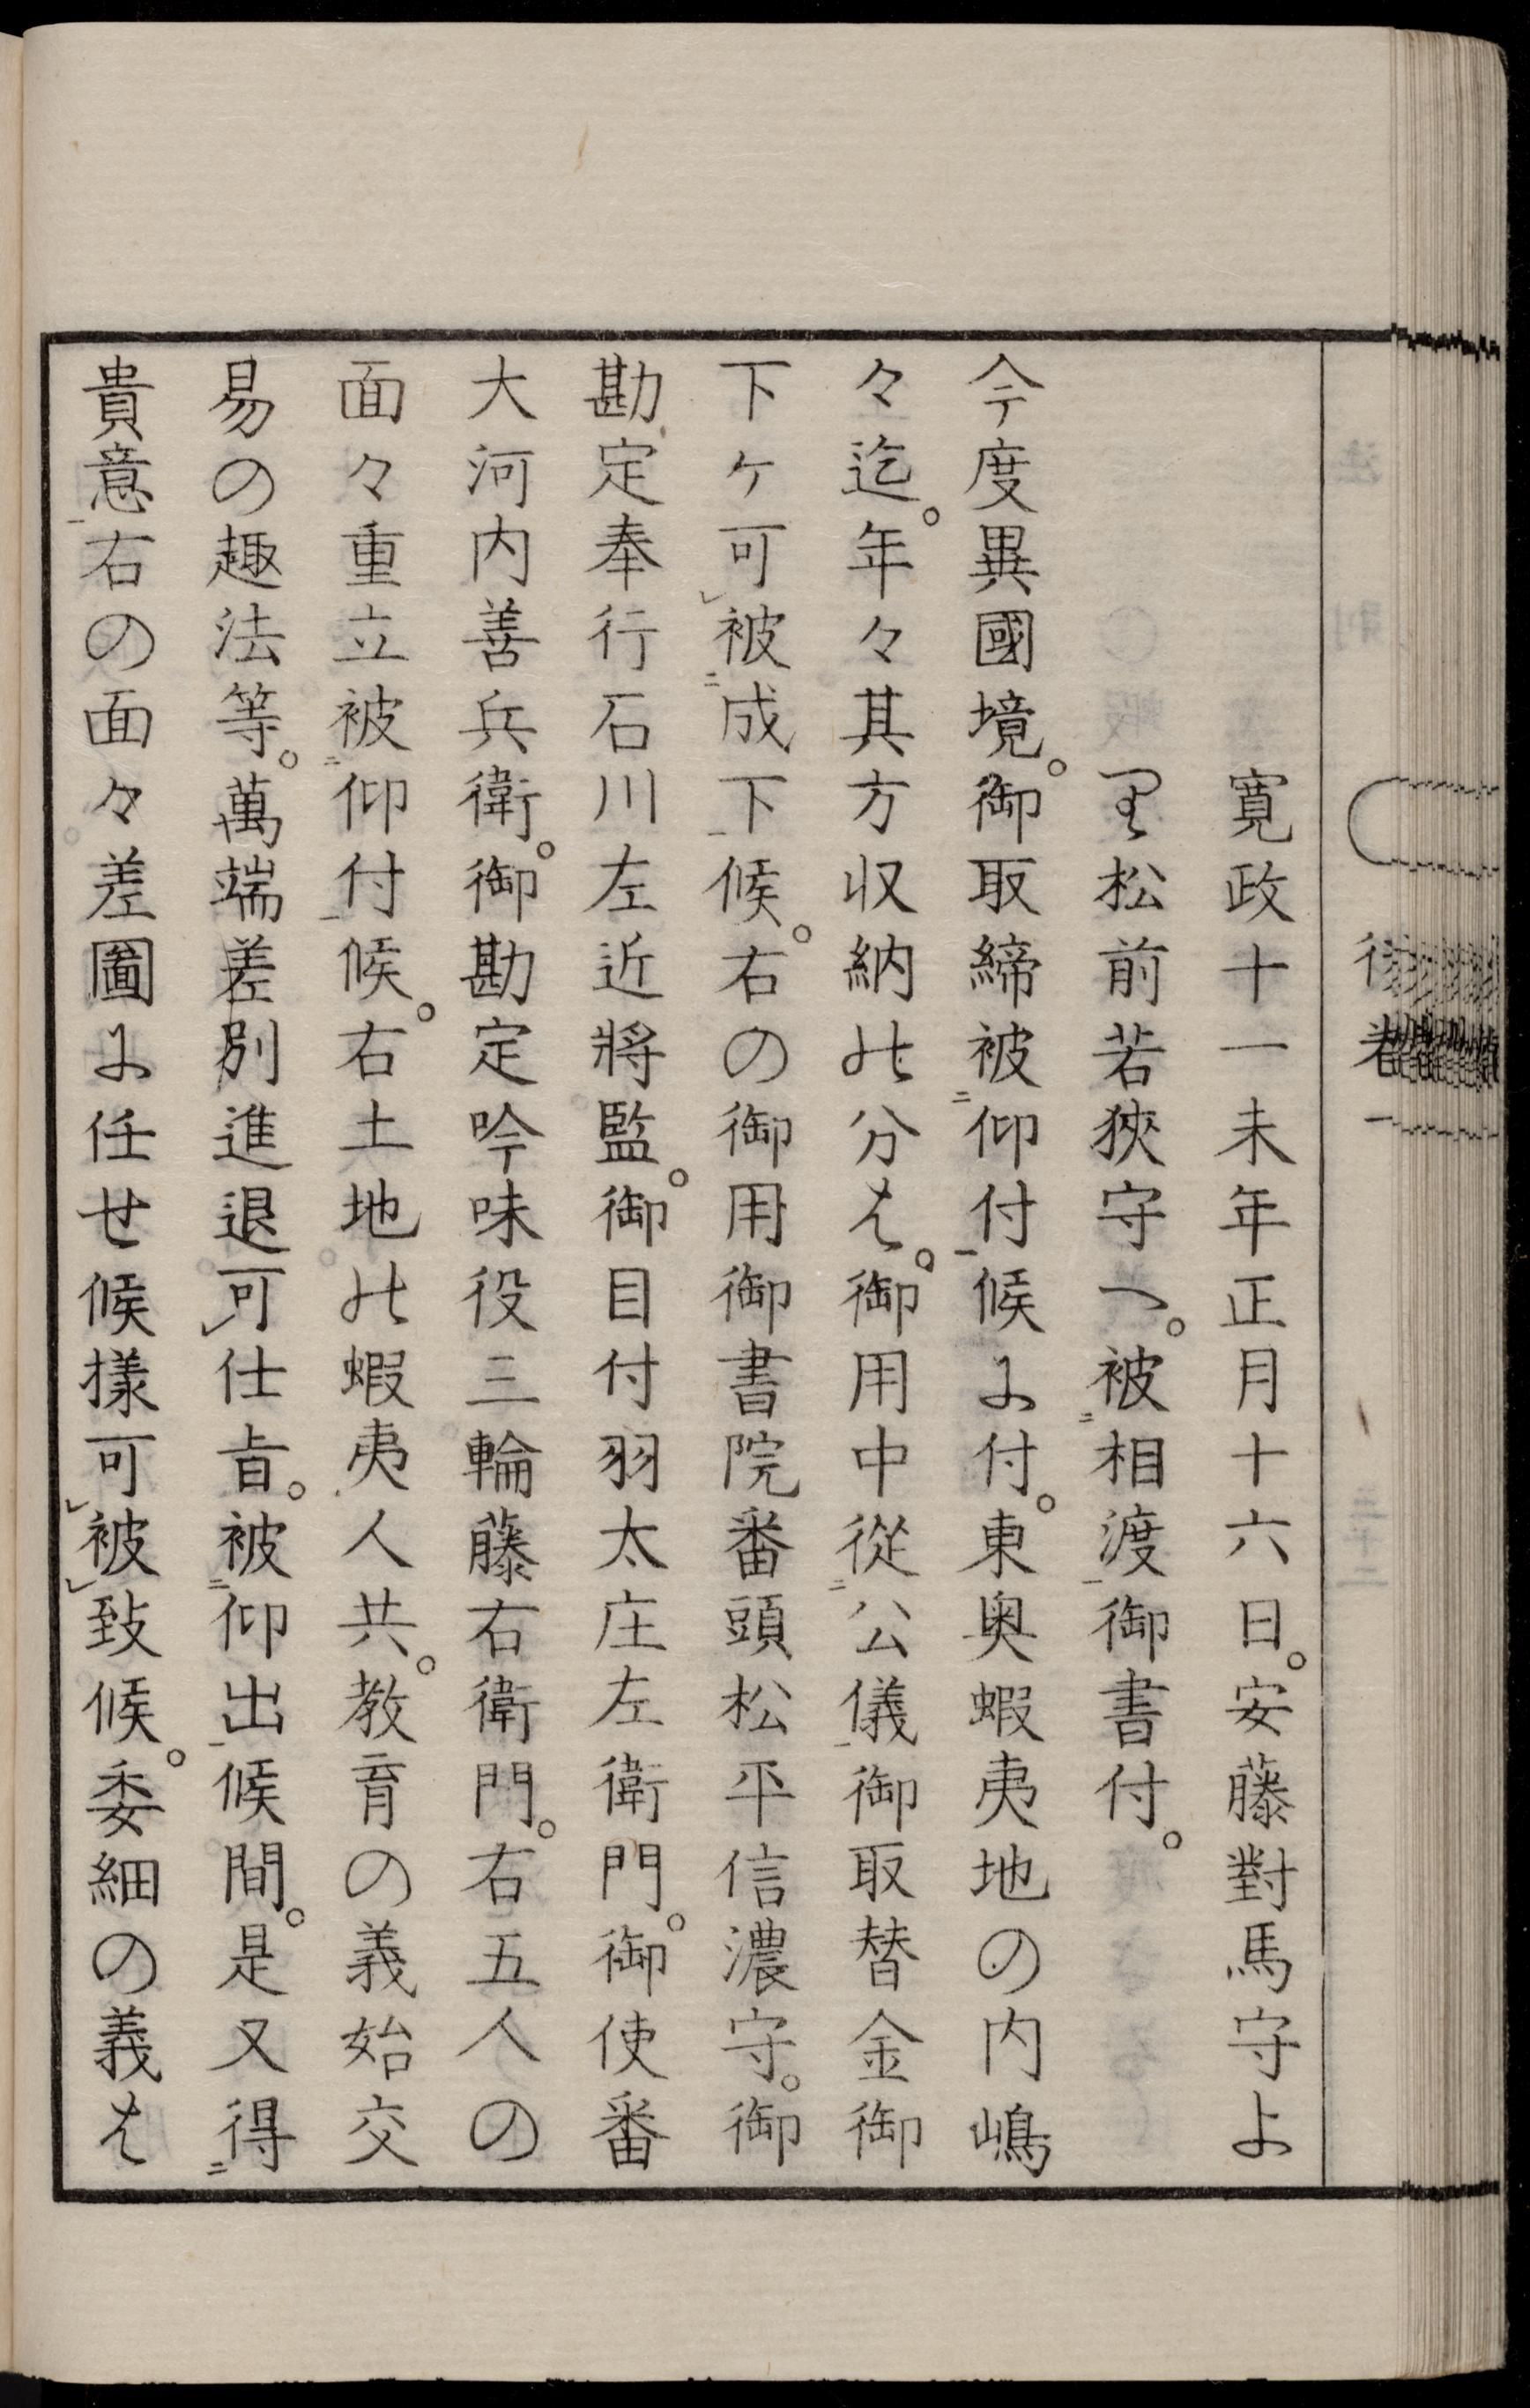 寛政十一未年正月十六日。安藤對馬守よ
り松前若狹守へ。被㆓相渡㆒御書付。
今度異國境。御取締被㆓仰付㆒候よ付。東奥蝦夷地の内嶋
々迄。年々其方収納の分は。御用中從㆓公儀㆒御取替金御
下ケ可㆑被㆓成下㆒候。右の御用御書院番頭松平信濃守。御
勘定奉行石川左近將監。御目付羽太庄左衛門。御使番
大河内善兵衛。御勘定吟味役三輪藤右衛門。右五人の
面々重立被㆓仰付㆒候。右土地の蝦夷人共。教育の義始交
易の趣法等。萬端差別進退可㆑仕旨。被㆓仰出㆒候間。是又得㆓
貴意㆒右の面々差圖よ任せ候様可㆑被㆑致候。委細の義は